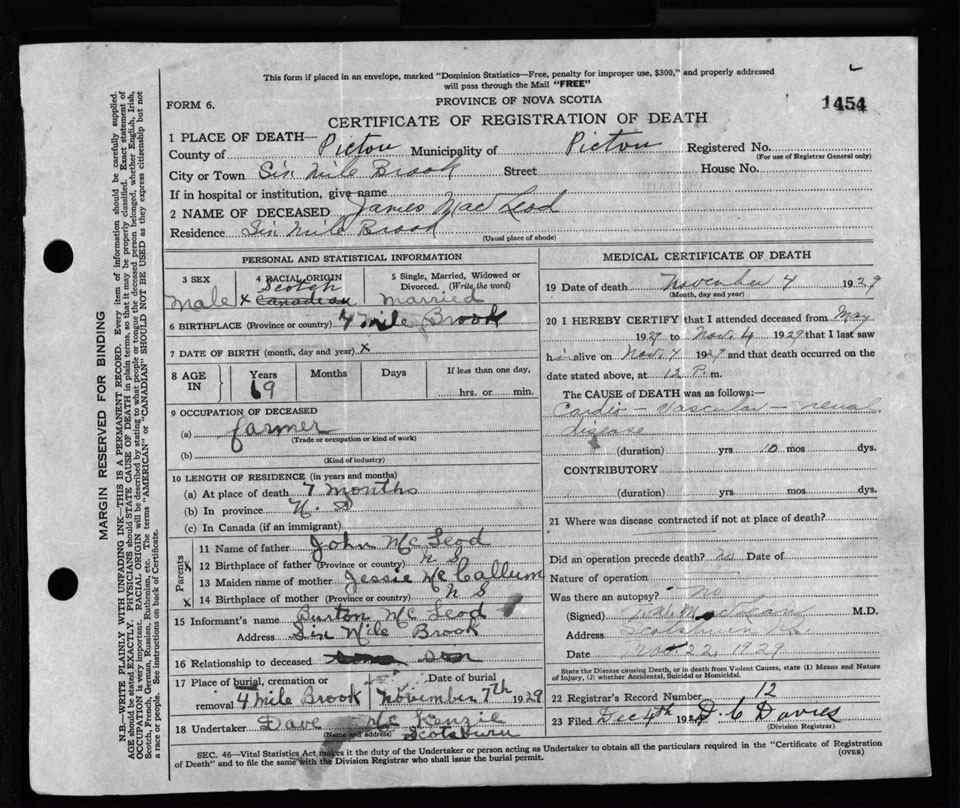 This form if placed in an envelope, marked "Dominion Statistics—Free, penalty for improper use, $300," and properly addressed
will pass through the Mail "FREE"
FORM 6.
PROVINCE OF NOVA SCOTIA
1454
CERTIFICATE OF REGISTRATION OF DEATH
1 PLACE OF DEATH—
County of Pictou Municipality of Pictou Registered No.
(For use of Registrar General only)
City or Town Six Mile Brook Street House No.
If in hospital or institution, give name
2 NAME OF DECEASED James MacLeod
Residence Six Mile Brook
(Usual place of abode)
PERSONAL AND STATISTICAL INFORMATION
3 SEX 4 RACIAL ORIGIN 5 Single, Married, Widowed or
Divorced. (Write the word)
Scotch
Male x Canadian married
6 BIRTHPLACE (Province or country) 4 Mile Brook
7 DATE OF BIRTH (month, day and year) x
8 AGE IN Years Months Days If less than one day,
69 hrs. or min.
9 OCCUPATION OF DECEASED
(a) farmer
(Trade or occupation or kind of work)
(b)
(Kind of industry)
10 LENGTH OF RESIDENCE (in years and months)
(a) At place of death 7 months
(b) In province N. S
(c) In Canada (if an immigrant)
Parents
11 Name of father John McLeod
x 12 Birthplace of father (Province or country) N S
13 Maiden name of mother Jessie McCallum
x 14 Birthplace of mother (Province or country) N S
15 Informant's name Burton McLeod
Address Six Mile Brook
16 Relationship to deceased son
17 Place of burial, cremation or Date of burial
removal 4 Mile Brook November 7th 1929
18 Undertaker Dave McKenzie
(Name and address) Scotsburn
MEDICAL CERTIFICATE OF DEATH
19 Date of death November 4 1929
(Month, day and year)
20 I HEREBY CERTIFY that I attended deceased from May
1929 to Nov. 4 1929 that I last saw
him alive on Nov. 1929 and that death occurred on the
date stated above, at 12 P. m.
The CAUSE of DEATH was as follows:—
Cardio - vascular - renal
disease
(duration) yrs 10 mos dys.
CONTRIBUTORY
(duration) yrs. mos. dys.
21 Where was disease contracted if not at place of death?
Did an operation precede death? no Date of
Nature of operation
Was there an autopsy? no
(Signed) MacLean M.D.
Address Scotsburn
Date 22, 1929
State the Disease causing Death, or in death from Violent Causes, state (1) Means and Nature
of Injury, (2) whether Accidental, Suicidal or Homicidal.
22 Registrar's Record Number 12
23 Filed Dec 4th 1929 D. C Davies
(Division Registrar)
SEC. 46—Vital Statistics Act makes it the duty of the Undertaker or person acting as Undertaker to obtain all the particulars required in the "Certificate of Registration
of Death" and to file the same with the Division Registrar who shall issue the burial permit.
(OVER)
MARGIN RESERVED FOR BINDING
N.B.—WRITE PLAINLY WITH UNFADING INK—THIS IS A PERMANENT RECORD. Every item of information should be carefully supplied.
AGE should be stated EXACTLY. PHYSICIANS should STATE CAUSE OF DEATH in plain terms, so that it may be properly classified. Exact statement of
OCCUPATION is very important. RACIAL ORIGIN will be described by stating to what people or tongue the deceased person belonged, whether English, Irish,
Scotch, French, German, Russian, Ruthenian, etc. The terms "AMERICAN" or "CANADIAN" SHOULD NOT BE USED as they express citizenship but not
a race or people. See instructions on back of Certificate.